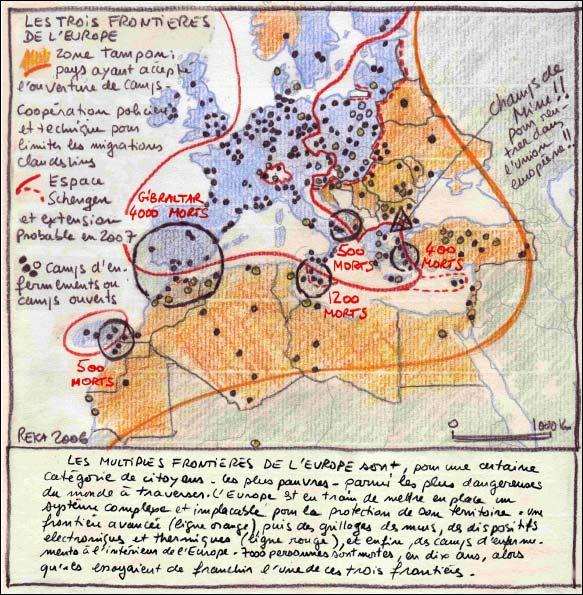 LES TROIS FRONTIERES
DE L'EUROPE
Zone Tampon:
pays ayant accepté
l'ouverture de camps-
Coopération policière
et technique pour
limiter les migrations
clandestines
Espace
Schengen
et extension
probable en 2007
Camps d'en-
fermements ou
camps ouverts
GIBRALTAR
4000 MORTS
500
MORTS
400
MORTS
1200
MORTS
500
MORTS
champs de
Mine!!
pour ren-
trer dans
l'union
européenne!!
REKA 2006
0
1000 Km
LES MULTIPLES FRONTIERES DE L'EUROPE sont, pour une certaine
catégorie de citoyens - les plus pauvres - parmi les plus dangereuses
du monde à traverser. L'Europe est en train de mettre en place un
système complexe et implacable pour la protection de son territoire: une
frontière avancée (ligne orange), puis des grillages des murs, des dispositifs
electroniques et thermiques (ligne rouge), et enfin, des camps d'enferme-
ments à l'intérieur de l'Europe. 7000 personnes sont mortes, en dix ans, alors
qu'elles essayaient de franchir l'une de ces trois frontières.